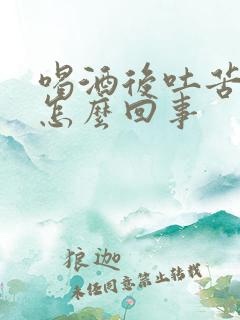 喝酒後吐苦
怎麼回事
狼迦
未经同意禁止转载